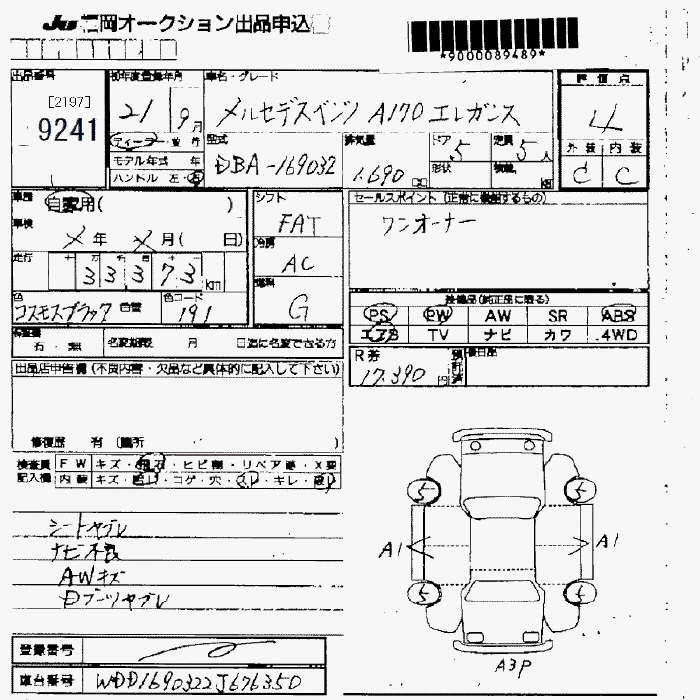 JU福岡オークション出品申込
*9000089489*
出品番号
[2197]
9241
初年度登録年月
21 9月
ディーラー・並行
モデル年式 年
ハンドル 左・右
車名・グレード
メルセデスベンツ A170 エレガンス
型式
DBA-169032
排気量
1.690 cc
ドア
5
形状
定員
5人
積載
kg
評価点
4
外装 内装
C C
車歴
自家用( )
車検
メ年 メ月( 日)
走行
十 万 千 百 十
3 3 3 7.3 km
色
コスモスブラック 自替
色コード
191
シフト
FAT
冷房
AC
燃料
G
セールスポイント(正常に機能するもの)
ワンオーナー
装備品(純正品に限る)
PS PW AW SR ABS
エアB TV ナビ カワ 4WD
有・無
名変期限 月 日迄に名変できる方
R券
17.390円
預託済
後日品
出品店申告欄(不良内容・欠品など具体的に記入して下さい)
修復歴 有(箇所 )
検査員記入欄
FW キズ・飛石・ヒビ割・リペア跡・X要
内装 キズ・コゲ・穴・スレ・キレ
シートヤブレ
AWキズ
Dブーツヤブレ
5 5
A1 A1
5 5
A3P
登録番号
車台番号 WDD1690322J676350